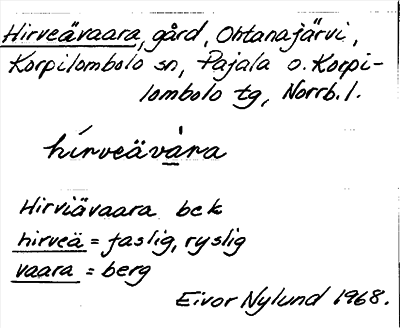 Hirveävaara, gård, Ohtanajärvi,
Korpilombolo sn, Pajala o. Korpi-
lombolo tg, Norrb. l.
hírveävàra
Hirviävaara bck
hirveä = faslig, ryslig
vaara = berg
Eivor Nylund 1968.